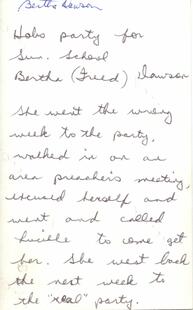 Bertha Dawson
Hobo party for
Sun. School
Bertha (Freed) Dawson
She went the wrong
week to the party,
walked in on an
area preacher's meeting,
excused herself and
went and called
Lucille to come get
her. She went back
the next week to
the "real" party.